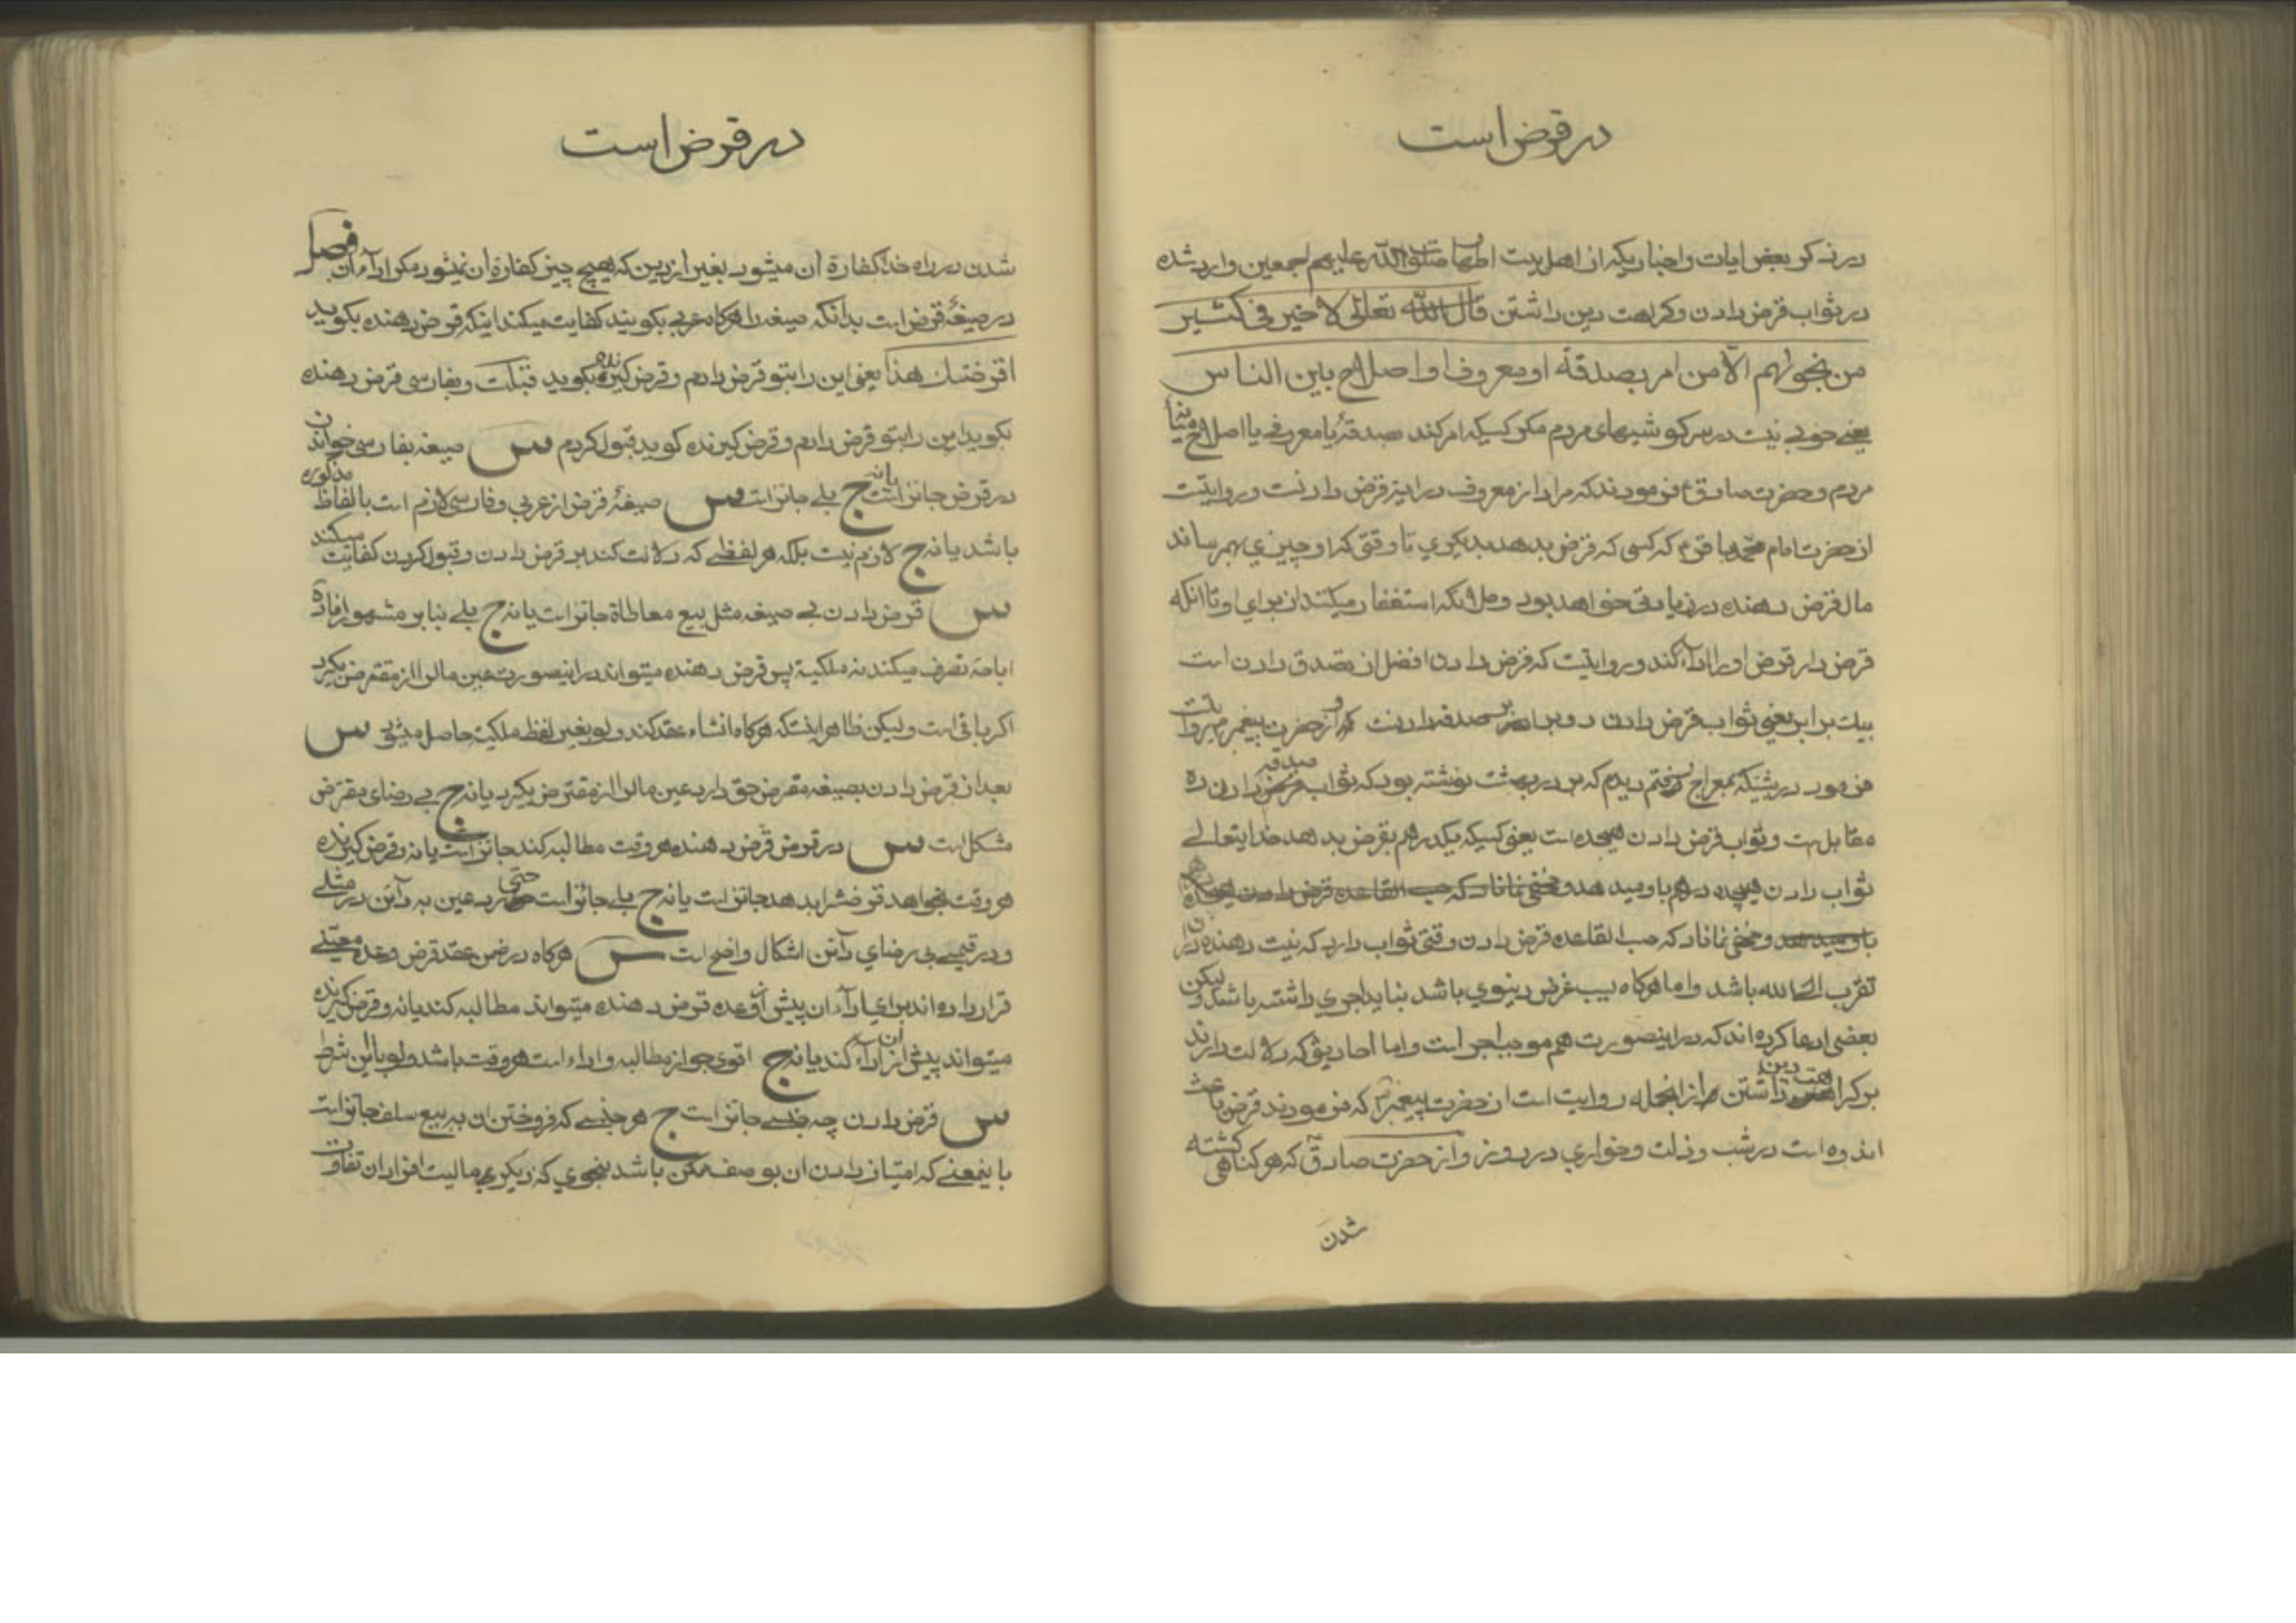 در قرض است
در ذکر بعض ایات و اخباریکه از اهل بیت اطهار صلوات الله علیهم اجمعین وارد شده
در ثواب قرض دادن و کراهت دین داشتن قال الله تعالی لا خیر فی کثیر
من نجویهم الا من امر بصدقة او معروف او اصلاح بین الناس
یعنی خوبی نیست در سرکوشیهای مردم مکر کسیکه امر کند صدقهٔ یا معروفی یا اصلاح میانهٔ
مردم و حضرت صادق ع فرمودند که مراد از معروف در اینه قرض دادنست و روایتست
از حضرت امام محمد باقر ع که کسی که قرض بدهد بدیکری تا وقتی که او چیزی بهم رساند
مال قرض دهنده در زیادتی خواهد بود و ملائکه استغفار میکنند از برای او تا انکه
قرض دار قرض او را اداء کند و روایتست که قرض دادن افضل از تصدق دادن است
بیک برابر یعنی ثواب قرض دادن دو برابر صدقه دادنست و از حضرت پیغمبر م روایتست
فرمود در شبیکه بمعراج رفتم دیدم که بر در بهشت نوشته بود که ثواب صدقه دادن ده
مقابل است و ثواب قرض دادن هیجده است یعنی کسیکه یکدرهم بقرض بدهد خدایتعالی
ثواب دادن هیجده درهم باو میدهد و مخفی نماناد که حسب القاعده قرض دادن
باو میدهد و مخفی نماناد که حسب القاعده قرض دادن وقتی ثواب دارد که نیت دهنده از ان
تقرب الی الله باشد و اما هرکاه بسبب غرض دینوی باشد بناید اجری داشته باشد ولیکن
بعضی ادعا کرده اند که در اینصورت هم موجب اجر است و اما احادیثی که دلالت دارند
بر کراهت دین داشتن از انجمله روایت است از حضرت پیغمبر ص که فرمودند قرض باعث
اندوه است در شب و ذلت و خواری در روز و از حضرت صادق که هر کناهی کشته
شدن
در قرض است
شدن در راه خدا کفارهٔ ان میشود بغیر از دین که هیچ چیز کفارهٔ ان نمیشود مکر اداء ان فصل
در صیغهٔ قرض است بدانکه صیغه را هرکاه عربی بکویند کفایت میکند اینکه قرض دهنده بکوید
اقرضتک هذا یعنی این را بتو قرض دادم و قرض کیرنده بکوید قبلت و بفارسی قرض دهنده
بکوید این را بتو قرض دادم و قرض کیرنده کوید قبول کردم س صیغه بفارسی خواندن
در قرض جایز است یا نه ج بلی جایز است س صیغهٔ قرض از عربی و فارسی لازم است بالفاظ مذکوره
باشد یا نه ج لازم نیست بلکه هر لفظی که دلالت کند بر قرض دادن و قبول کردن کفایت میکند
س قرض دادن بی صیغه مثل بیع معاطاة جایز است یا نه ج بلی بنابر مشهور افادهٔ
اباحهٔ تصرف میکند نه ملکیة پس قرض دهنده میتواند در اینصورت عین مال را از مقترض بکیرد
اکر باقی است ولیکن ظاهر اینستکه هرکاه انشاء عقد کند ولو بغیر لفظ ملکیت حاصل میشود س
بعد از قرض دادن بصیغه مقرض حق دارد عین مال را از مقترض بکیرد یا نه ج بی رضای مقترض
مشکل است س در قرض قرض دهنده هر وقت مطالبه کند جایز است یا نه و قرض کیرنده
هر وقت بخواهد قرضش را بدهد جایز است یا نه ج بلی جایز است حتی رد عین به دائن در مثلی
و در قیمی بی رضای دائن اشکال واضح است س هرکاه در ضمن عقد قرض وعدهٔ معینی
قرار داده اند برای اداء ان پیش از وعده قرض دهنده میتواند مطالبه کند یا نه و قرض کیرنده
میتواند پیش از ان اداء کند یا نه ج اقوی جواز مطالبه و اداء است هر وقت باشد ولو با این شرط
س قرض دادن چه جنسی جایز است ج هر جنسی که فروختن ان به بیع سلف جایز است
باینمعنی که امتیاز دادن ان بوصف ممکن باشد بنحوی که دیکر در مالیت افراد ان تفاوت